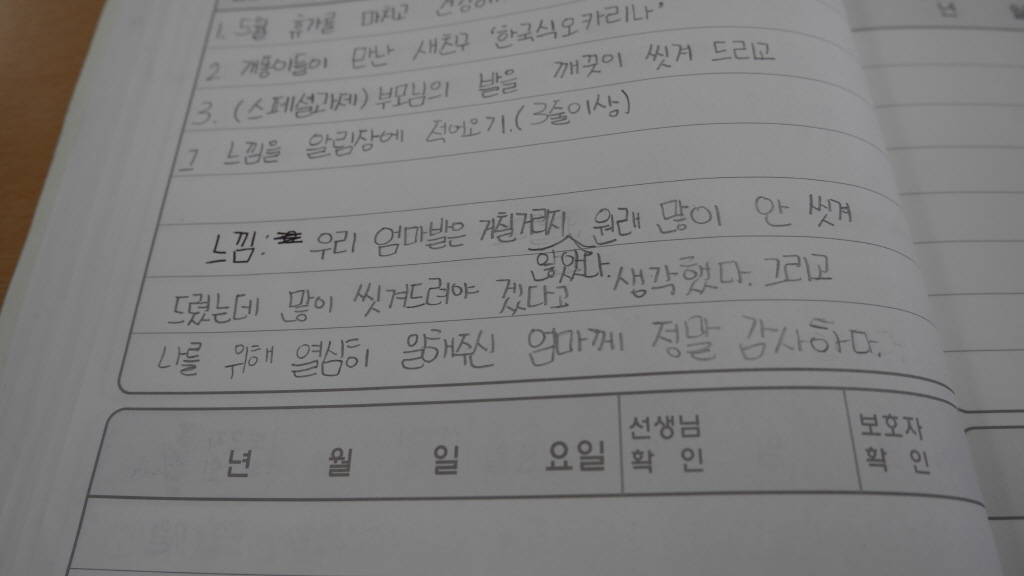 1. 5월 휴가를 마치고
년 일
2. 개똥이들이 만난 새친구 '한국식오카리나'
3. (스페셜과제) 부모님의 발을 깨끗이 씻겨 드리고
그 느낌을 알림장에 적어오기. (3줄이상)
느낌: 우리 엄마발은 거칠거리지 원래 많이 안 씻겨
않았다.
드렸는데 많이 씻겨드려야 겠다고 생각했다. 그리고
나를 위해 열심히 일해주신 엄마께 정말 감사하다.
년 월 일 요일
선생님
확 인
보호자
확 인